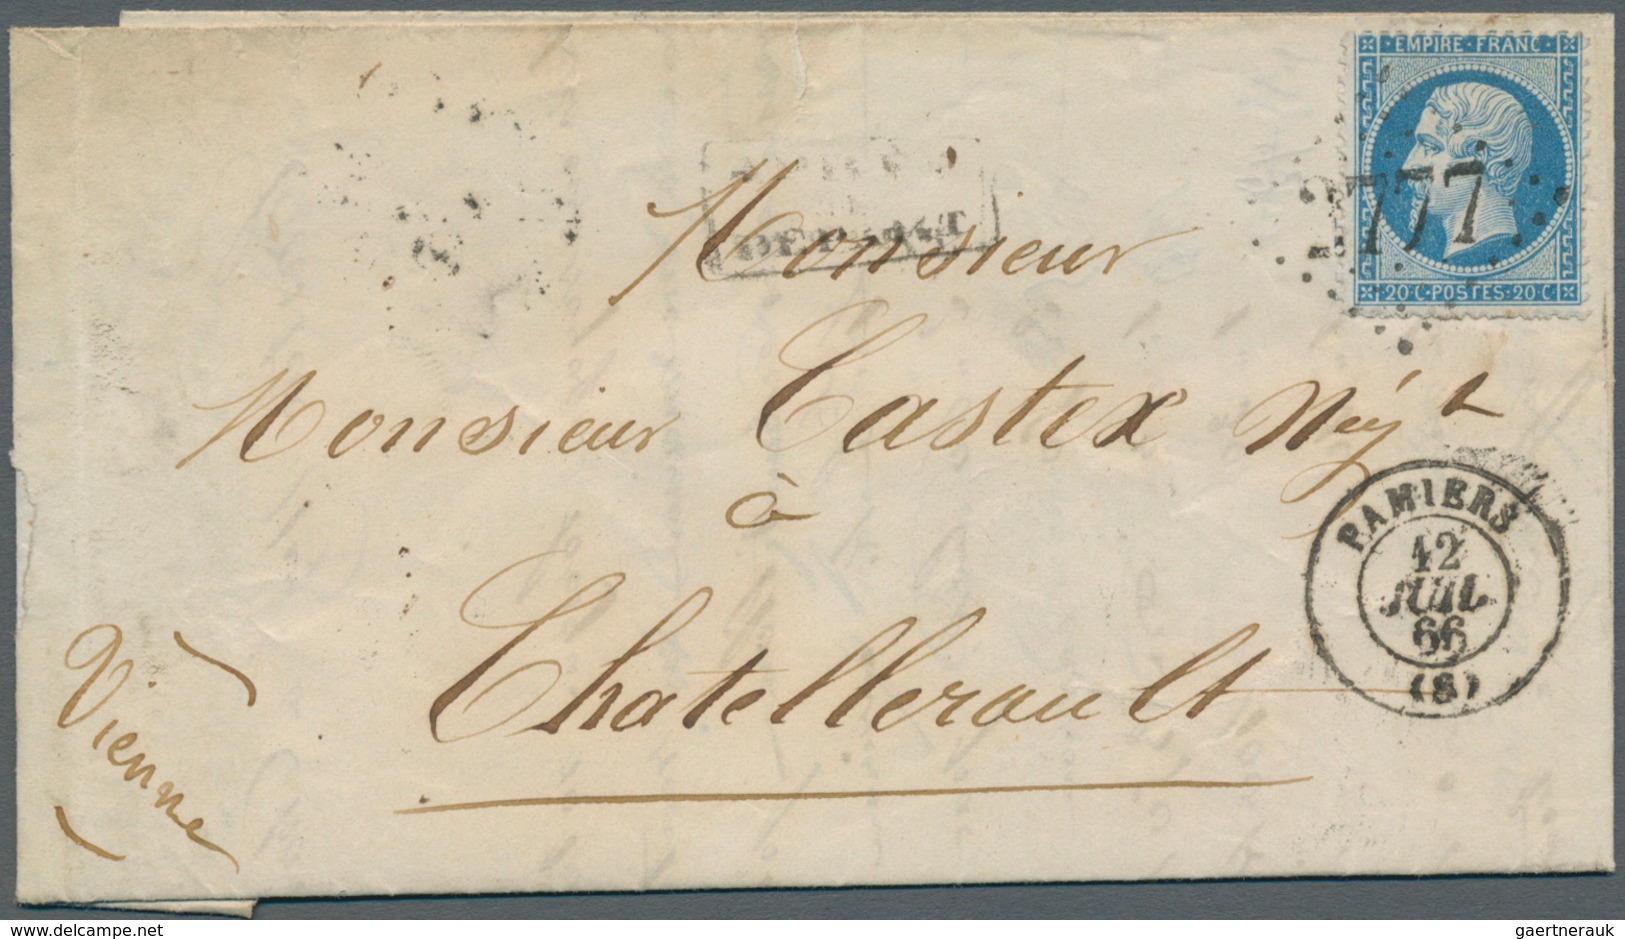 EMPIRE·FRANC·
2777
20·C·POSTES·20·C
DEPART
Monsieur
Monsieur Castex Nég^t
à
Chatellerault
Vienne
PAMIERS
12
JUIL
66
(8)
delcampe.net
gaertnerauk